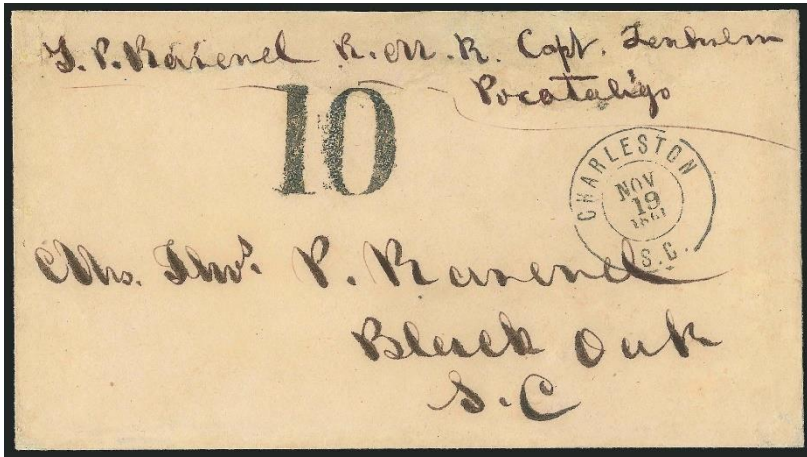 T. P. Ravenel R. M. R. Capt. Trenholm
Pocotaligo
10
CHARLESTON
NOV
19
1861
S.C.
Mrs. Thos. P. Ravenel
Black Oak
S.C